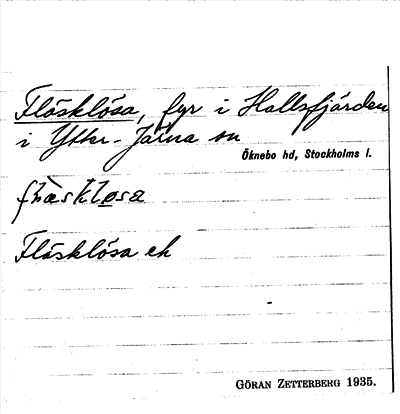 Fläsklösa, fyr i Hallsfjärden
i Ytter-Järna sn
Öknebo hd, Stockholms l.
Fläsklösa ek
GÖRAN ZETTERBERG 1935.